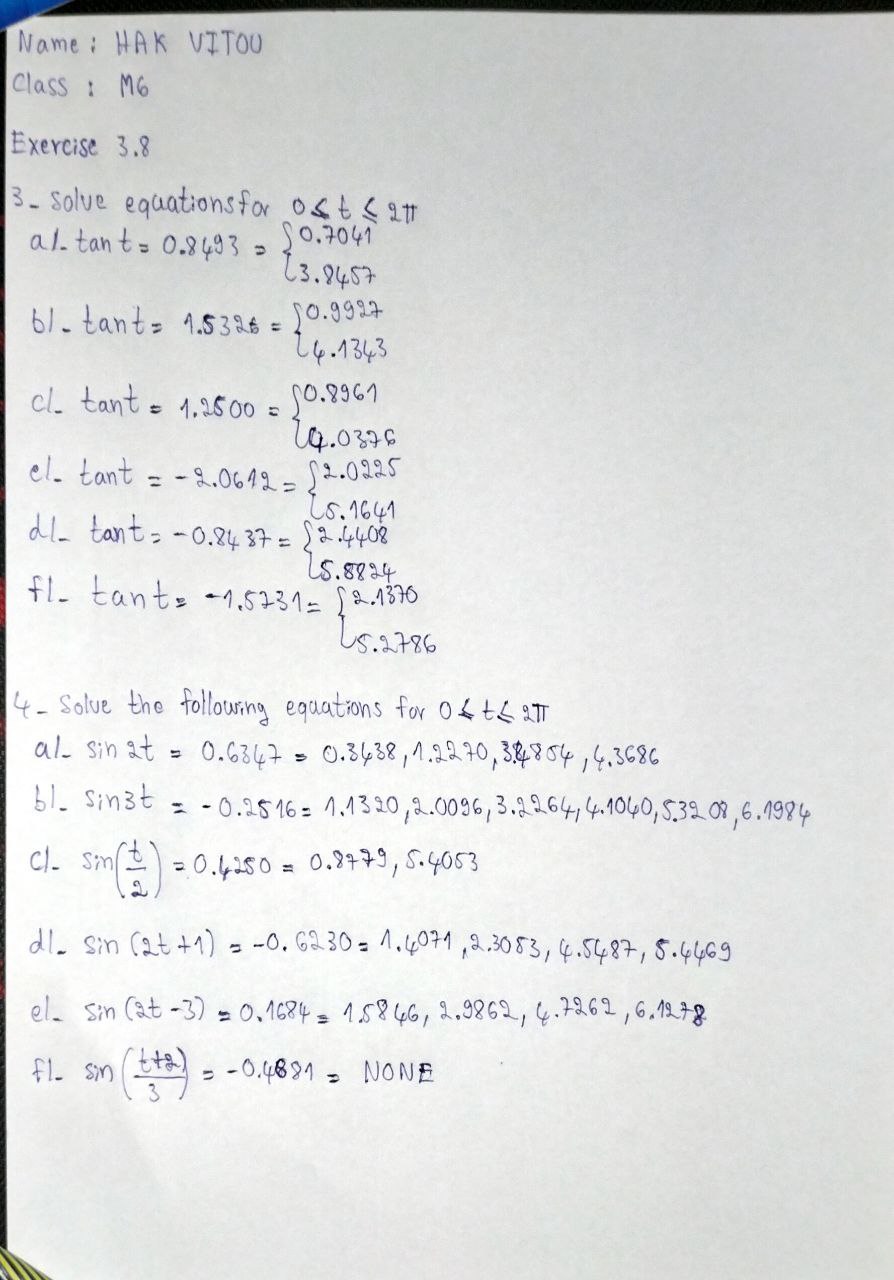 Name : HAK VITOU
Class : M6
Exercise 3.8
3- Solve equations for 0 ≤ t ≤ 2π
a/- tan t = 0.8493 = { 0.7041
3.8457
b/- tan t = 1.5326 = { 0.9927
4.1343
c/- tan t = 1.2500 = { 0.8961
4.0376
e/- tan t = -2.0612 = { 2.0225
5.1641
d/- tan t = -0.8437 = { 2.4408
5.8824
f/- tan t = -1.5731 = { 2.1370
5.2786
4- Solve the following equations for 0 ≤ t ≤ 2π
a/- sin 2t = 0.6347 = 0.3438, 1.2270, 3.4854, 4.3686
b/- sin3t = -0.2516 = 1.1320, 2.0096, 3.2264, 4.1040, 5.3208, 6.1984
c/- sin(t/2) = 0.4250 = 0.8779, 5.4053
d/- sin (2t+1) = -0.6230 = 1.4071, 2.3053, 4.5487, 5.4469
e/- sin (2t-3) = 0.1684 = 1.5846, 2.9862, 4.7262, 6.1278
f/- sin((t+2)/3) = -0.4681 = NONE